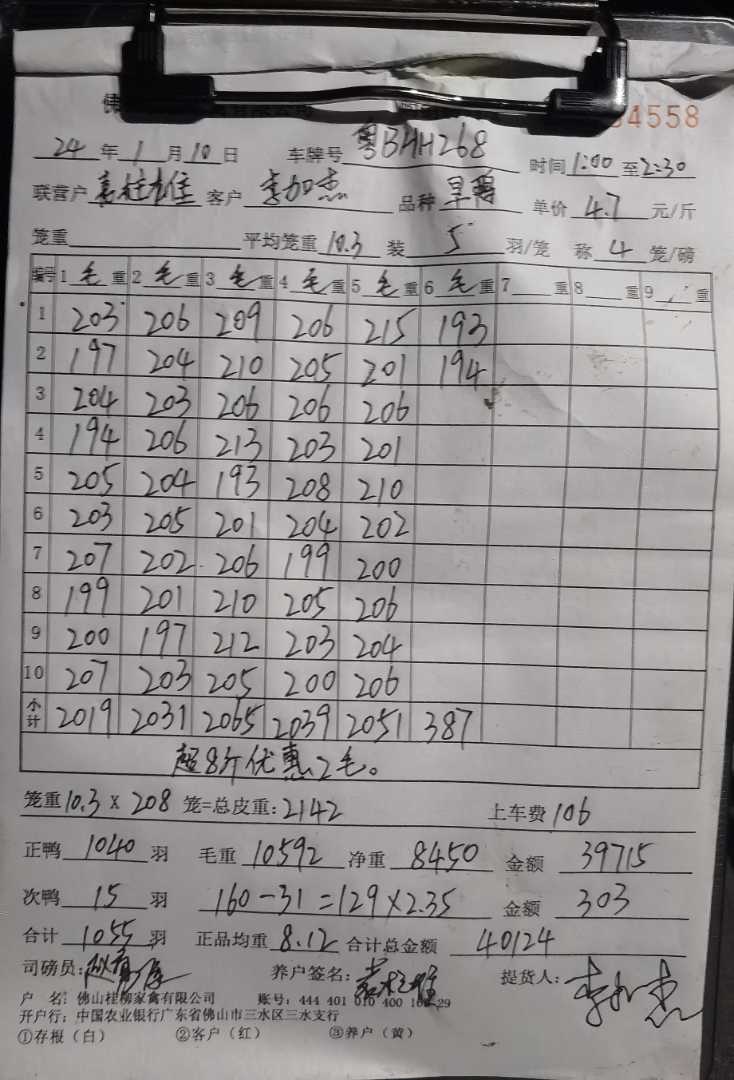 佛
4558
24年1月10日 车牌号 粤BHH268 时间1:00至2:30
联营户 雄 客户 李加杰 品种 单价 4.7 元/斤
笼重 平均笼重10.3 装 5 羽/笼 称 4 笼/磅
编号 1 毛 重 2 毛 重 3 毛 重 4 毛 重 5 毛 重 6 毛 重 7 重 8 重 9 重
1 203 206 209 206 215 193
2 197 204 210 205 201 194
3 204 203 206 206 206
4 194 206 213 203 201
5 205 204 193 208 210
6 203 205 201 204 202
7 207 202 206 199 200
8 199 201 210 205 206
9 200 197 212 203 204
10 207 203 205 200 206
小计 2019 2031 2065 2039 2051 387
超8斤优惠2毛。
笼重10.3 x 208 笼=总皮重:2142 上车费 106
正鸭 1040 羽 毛重 10592 净重 8450 金额 39715
次鸭 15 羽 160-31=129×2.35 金额 303
合计 1055 羽 正品均重 8.12 合计总金额 40124
司磅员: 养户签名: 雄 提货人: 李加杰
户 名: 佛山桂柳家禽有限公司 账号: 444 401 010 400 29
开户行: 中国农业银行广东省佛山市三水区三水支行
①存根（白） ②客户（红） ③养户（黄）